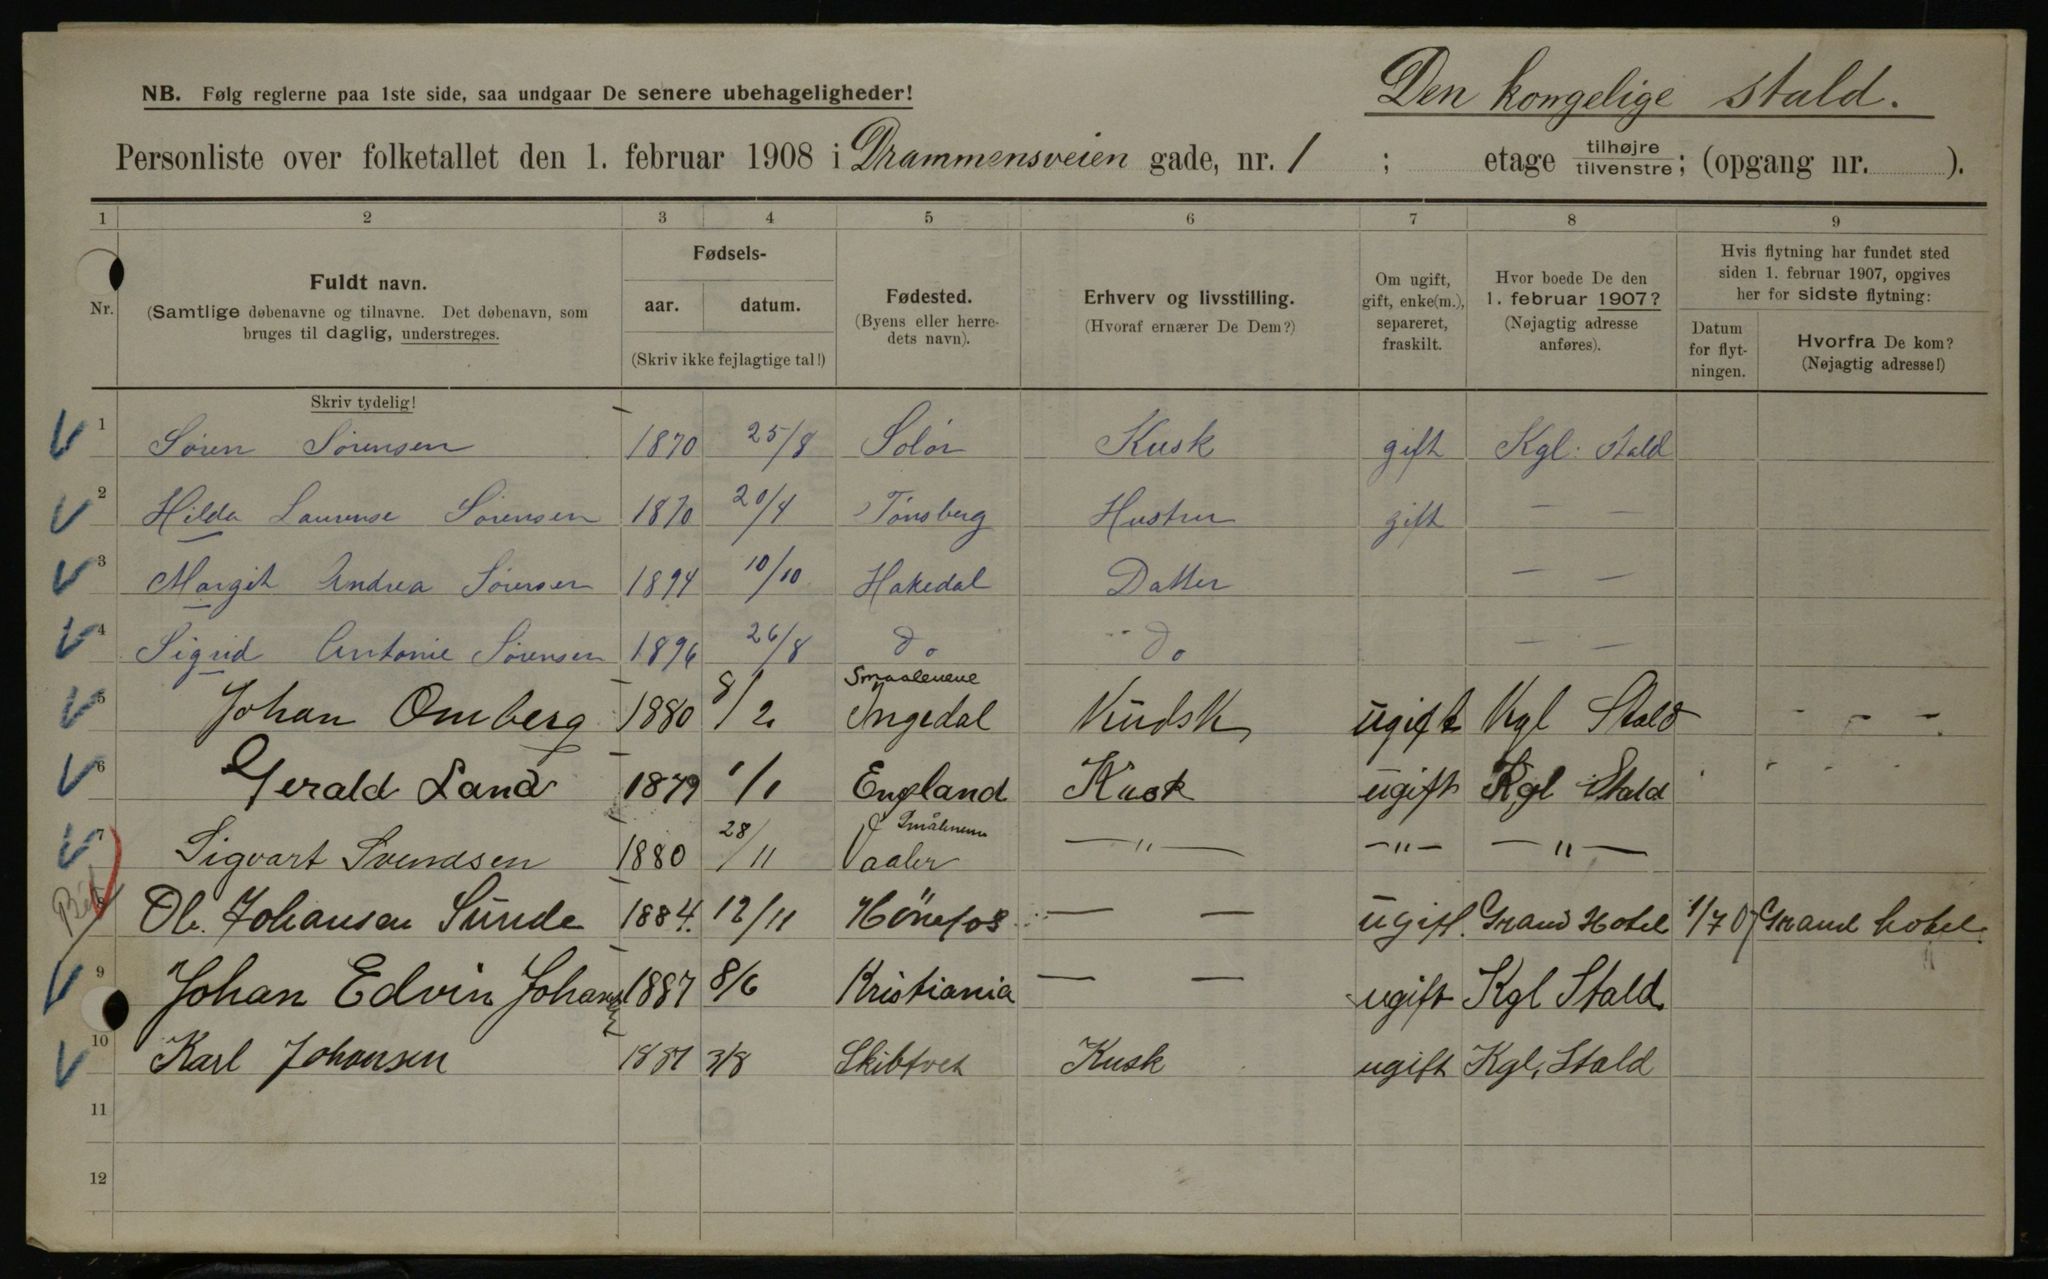 Den kongelige stald.
NB. Følg reglerne paa 1ste side, saa undgaar De senere ubehageligheder!
Personliste over folketallet den 1. februar 1908 i Drammensveien gade, nr. 1 ; etage tilhøjre tilvenstre; (opgang nr. ).
1 2 3 4 5 6 7 8 9
Nr.
Fuldt navn.
(Samtlige døbenavne og tilnavne. Det døbenavn, som
bruges til daglig, understreges.
Skriv tydelig!
Fødsels-
aar. datum.
(Skriv ikke fejlagtige tal!)
Fødested.
(Byens eller herre-
dets navn).
Erhverv og livsstilling.
(Hvoraf ernærer De Dem?)
Om ugift,
gift, enke(m.),
separeret,
fraskilt.
Hvor boede De den
1. februar 1907?
(Nøjagtig adresse
anføres).
Hvis flytning har fundet sted
siden 1. februar 1907, opgives
her for sidste flytning:
Datum
for flyt-
ningen.
Hvorfra De kom?
(Nøjagtig adresse!)
1 Søren Sørensen 1870 25/8 Solør Kusk gift Kgl: Stald
2 Hilda Laurense Sørensen 1870 20/4 Tønsberg Hustru gift — —
3 Margit Andrea Sørensen 1894 10/10 Hakedal Datter — —
4 Sigrid Antonie Sørensen 1896 26/8 Do Do — —
Smaalenene
5 Johan Omberg 1880 8/2 Ingedal Kudsk ugift Kgl Stald - - -
6 Gerald Land 1879 1/1 England Kusk ugift Kgl Stald
Smålenene
7 Sigvart Svendsen 1880 28/11 Vaaler —"— —"— —"—
8 Ole Johansen Sunde 1884. 12/11 Hönefos — — ugift. Grand Hotel 1/7 07 Grand hotel.
9 Johan Edvin Johansen 1887 8/6 Kristiania — — ugift Kgl Stald
10 Karl Johansen 1887 3/8 Skibtvet Kusk ugift Kgl, Stald
11
12